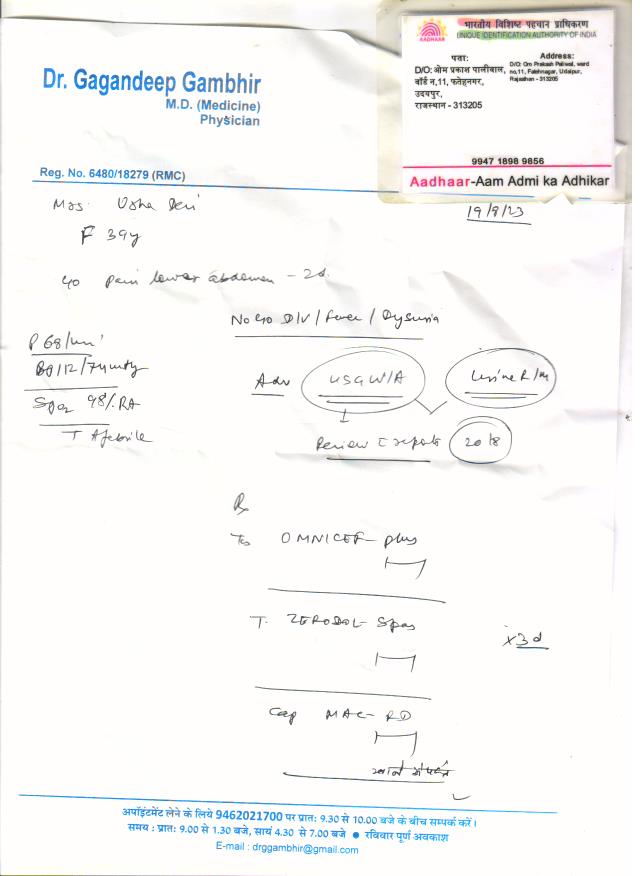 भारतीय विशिष्ट पहचान प्राधिकरण
UNIQUE IDENTIFICATION AUTHORITY OF INDIA
AADHAAR
पता:
D/O: ओम प्रकाश पालीवाल,
वॉर्ड न,11, फतेहनगर,
उदयपुर,
राजस्थान - 313205
Address:
D/O: Om Prakash Paliwal, ward
no,11, Fatehnagar, Udaipur,
Rajasthan - 313205
9947 1898 9856
Aadhaar-Aam Admi ka Adhikar
Dr. Gagandeep Gambhir
M.D. (Medicine)
Physician
Reg. No. 6480/18279 (RMC)
Mrs. Usha Devi
19/8/23
F 39y
c/o pain lower abdomen - 2d.
No c/o D/V / Fever / Dysuria
P 68/min
BP 112/74 mmHg
SpO2 98% RA
T Afebrile
Adv USG W/A Urine R/M
Review c reports 20/8
Rx
Tab OMNICEF- plus
T. ZERODOL- Spas
x3d
Cap MAC- RD
खाने से पहले
अपॉइंटमेंट लेने के लिये 9462021700 पर प्रात: 9.30 से 10.00 बजे के बीच सम्पर्क करें।
समय : प्रात: 9.00 से 1.30 बजे, सायं 4.30 से 7.00 बजे ● रविवार पूर्ण अवकाश
E-mail : drggambhir@gmail.com